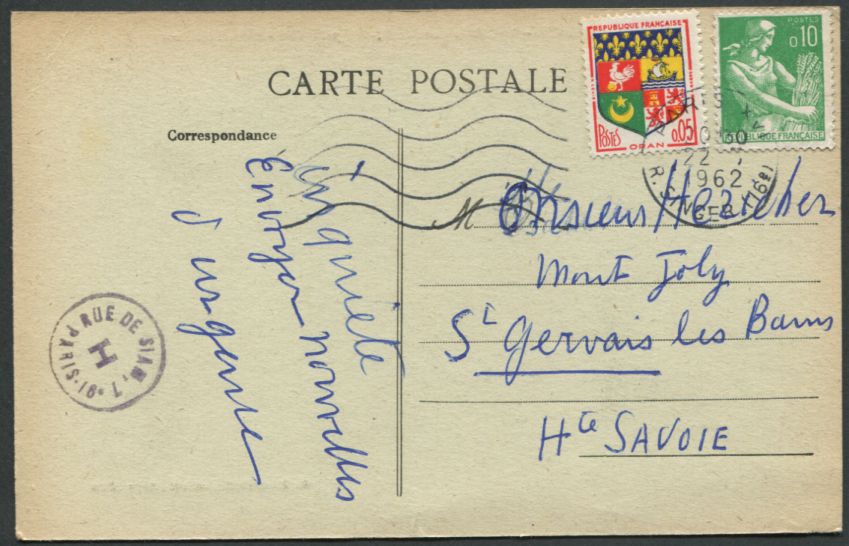 CARTE POSTALE
Correspondance
inquiète
Envoyer nouvelles
d'urgence
RUE DE SIAM, 7 • PARIS-16
H
REPUBLIQUE FRANÇAISE
POSTES
0,05
ORAN
POSTES
0,10
REPUBLIQUE FRANÇAISE
PARIS XVI
22
1962
R. SINGER (16e)
M Monsieur
Mont Joly
St Gervais les Bains
Hte SAVOIE